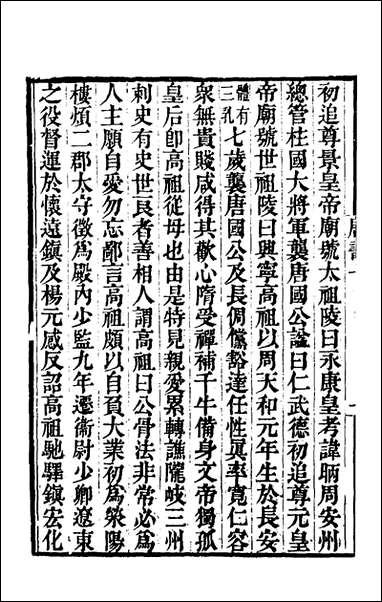 初追尊景皇帝廟號太祖陵曰永康皇考諱昞周安州
總管柱國大將軍襲唐國公諡曰仁武德初追尊元皇
帝廟號世祖陵曰興寧高祖以周天和元年生於長安
體有三乳七歲襲唐國公及長倜儻豁達任性眞率寬仁容
衆無貴賤咸得其歡心隋受禪補千牛備身文帝獨孤
皇后卽高祖從母也由是特見親愛累轉譙隴岐三州
刺史有史世良者善相人謂高祖曰公骨法非常必爲
人主願自愛勿忘鄙言高祖頗以自負大業初爲滎陽
樓煩二郡太守徵爲殿內少監九年遷衛尉少卿遼東
之役督運於懷遠鎭及楊元感反詔高祖馳驛鎭宏化